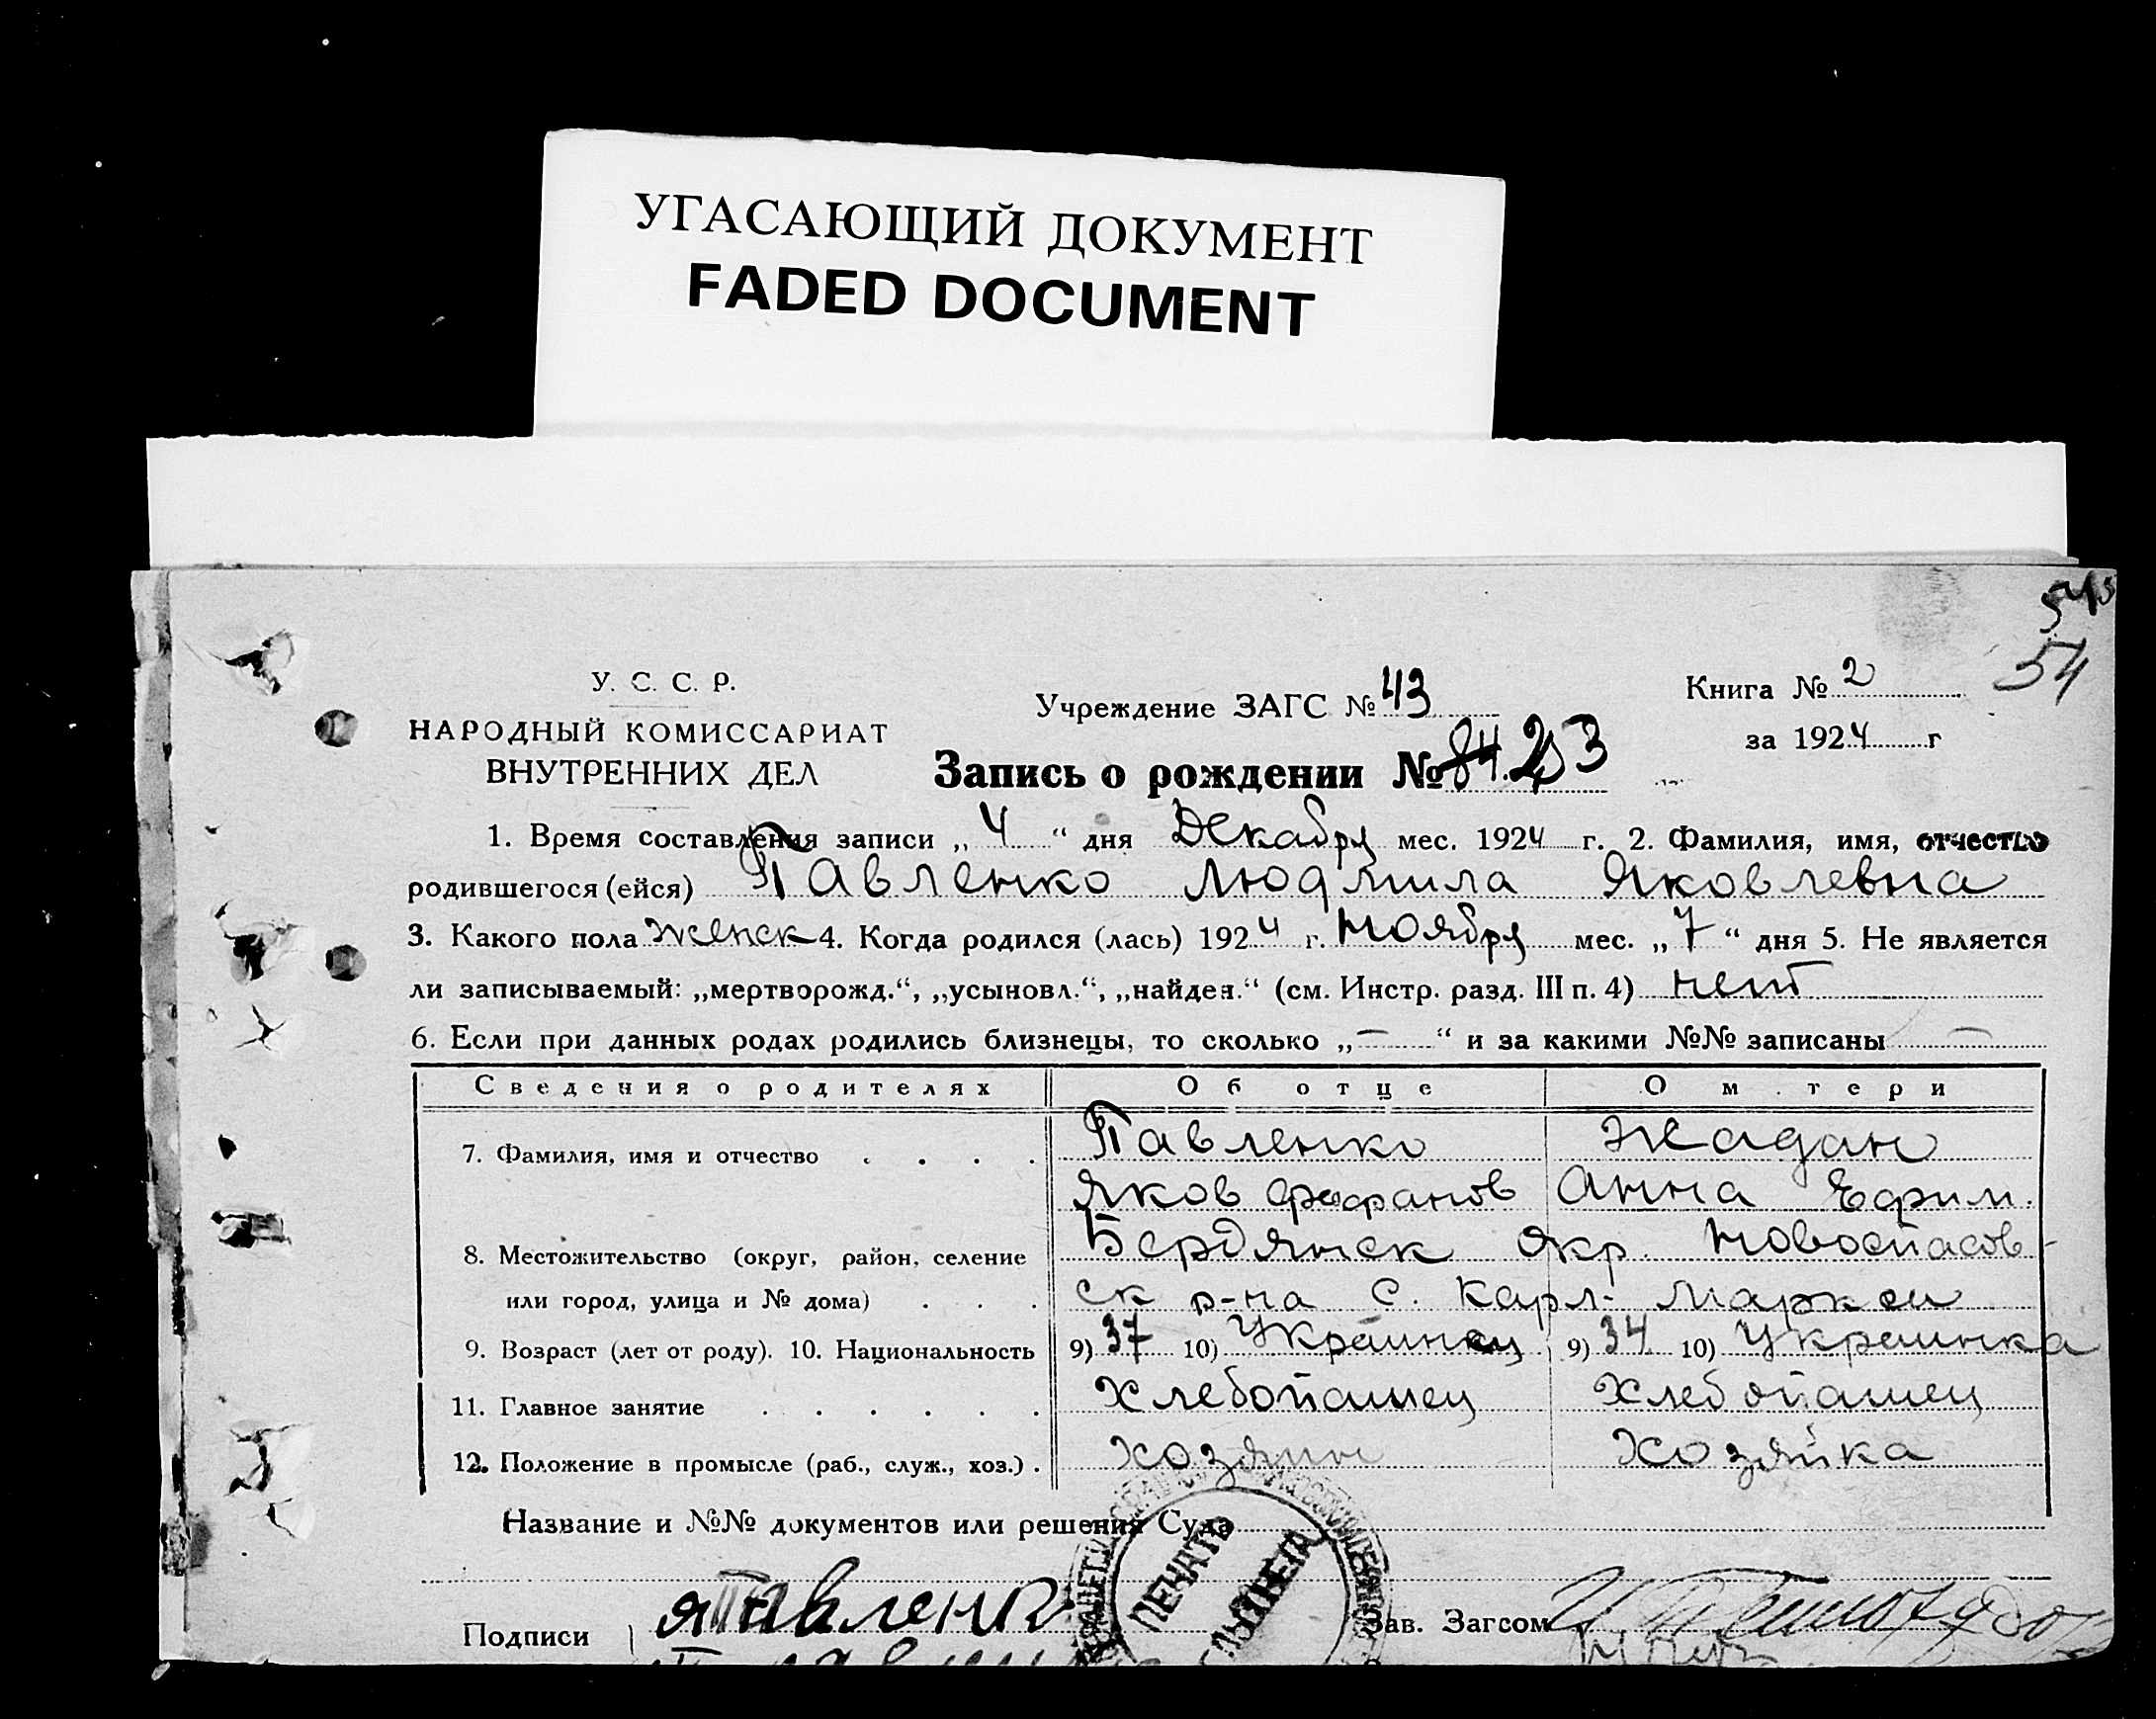 УГАСАЮЩИЙ ДОКУМЕНТ
FADED DOCUMENT
54
У. С. С. Р.
НАРОДНЫЙ КОМИССАРИАТ
ВНУТРЕННИХ ДЕЛ
Учреждение ЗАГС № 43
Книга № 2
за 1924 г
Запись о рождении № 84. 253
1. Время составления записи „ 4 “ дня Декабря мес. 1924 г. 2. Фамилия, имя, отчество
родившегося (ейся) Павленко Людмила Яковлевна
3. Какого пола женск 4. Когда родился (лась) 1924 г. Ноября мес. „ 7 “ дня 5. Не является
ли записываемый: „мертворожд.“, „усыновл.“, „найден.“ (см. Инстр. разд. III п. 4) нет
6. Если при данных родах родились близнецы, то сколько „ — “ и за какими №№ записаны —
Сведения о родителях Об отце О м тери
7. Фамилия, имя и отчество Павленко Жадан
Яков Анна Ефим.
8. Местожительство (округ, район, селение Бердянск окр. Новоспасов-
или город, улица и № дома) ск р-на с. Карл-
9. Возраст (лет от роду). 10. Национальность 9) 37 10) Украинец 9) 34 10) Украинка
11. Главное занятие Хлебопашец Хлебопашец
12. Положение в промысле (раб., служ., хоз.) Хозяин Хозяйка
Название и №№ документов или решения Суда
ПЕЧАТЬ
Подписи Я Павленко
Зав. Загсом